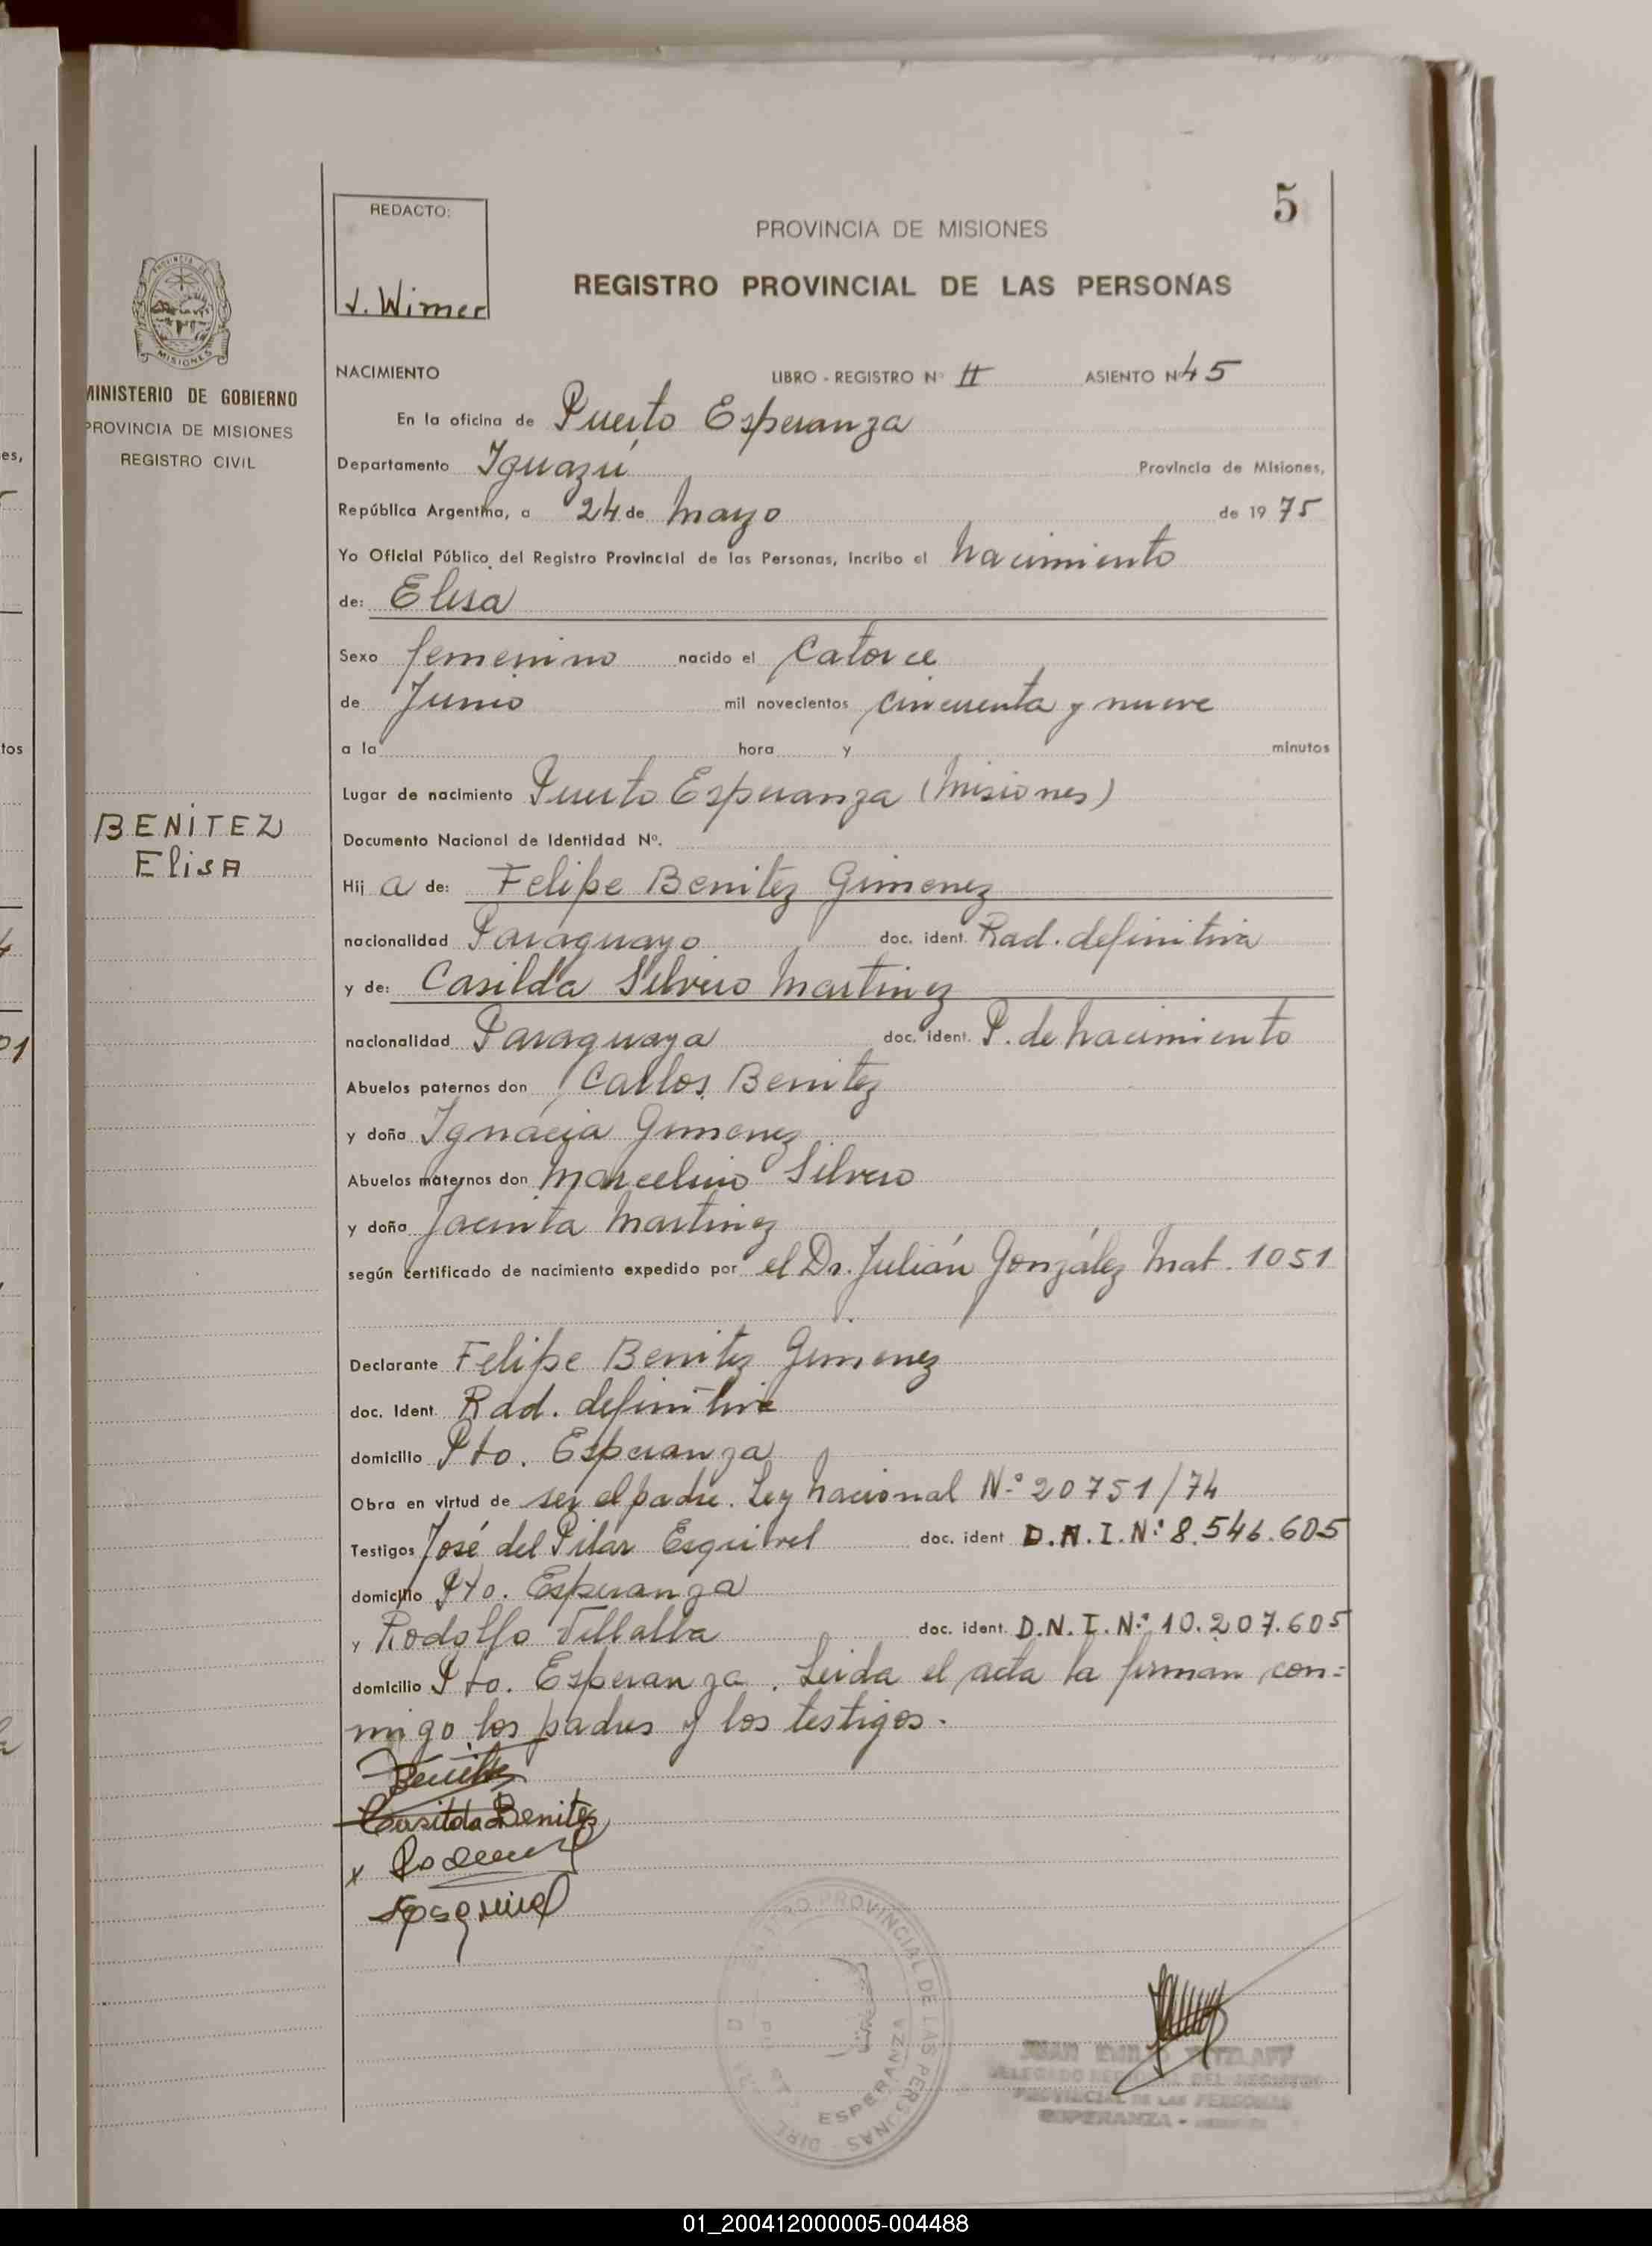 5
REDACTO:
J. Wimer
PROVINCIA DE MISIONES
REGISTRO PROVINCIAL DE LAS PERSONAS
PROVINCIA DE
MISIONES
MINISTERIO DE GOBIERNO
PROVINCIA DE MISIONES
REGISTRO CIVIL
NACIMIENTO LIBRO - REGISTRO Nº II ASIENTO Nº 45
En la oficina de Puerto Esperanza
Departamento Iguazú Provincia de Misiones,
República Argentina, a 24 de Mayo de 19 75
Yo Oficial Público del Registro Provincial de las Personas, incribo el Nacimiento
de: Elisa
Sexo femenino nacido el Catorce
de Junio mil novecientos cincuenta y nueve
a la hora y minutos
Lugar de nacimiento Puerto Esperanza (Misiones)
BENITEZ
Elisa
Documento Nacional de Identidad Nº.
Hij a de: Felipe Benitez Gimenez
nacionalidad Paraguayo doc. ident. Rad. definitiva
y de: Casilda Silvero Martinez
nacionalidad Paraguaya doc. ident. P. de Nacimiento
Abuelos paternos don Carlos Benitez
y doña Ignacia Gimenez
Abuelos maternos don Marcelino Silvero
y doña Jacinta Martinez
según certificado de nacimiento expedido por el Dr. Julián González Mat. 1051
Declarante Felipe Benitez Gimenez
doc. Ident. Rad. definitiva
domicilio Pto. Esperanza
Obra en virtud de ser el padre. Ley Nacional Nº 20751/74
Testigos José del Pilar Esquivel doc. ident D.N.I.Nº 8.546.605
domicilio Pto. Esperanza
y Rodolfo Villalba doc. ident. D.N.I.Nº 10.207.605
domicilio Pto. Esperanza. Leida el acta la firman con=
migo los padres y los testigos.
Benitez
Casilda Benitez
Esquivel
PROVINCIAL DE LAS PERSONAS
ESPERANZA
JUAN EMILIO
PROVINCIAL DE LAS PERSONAS
ESPERANZA -
01_200412000005-004488